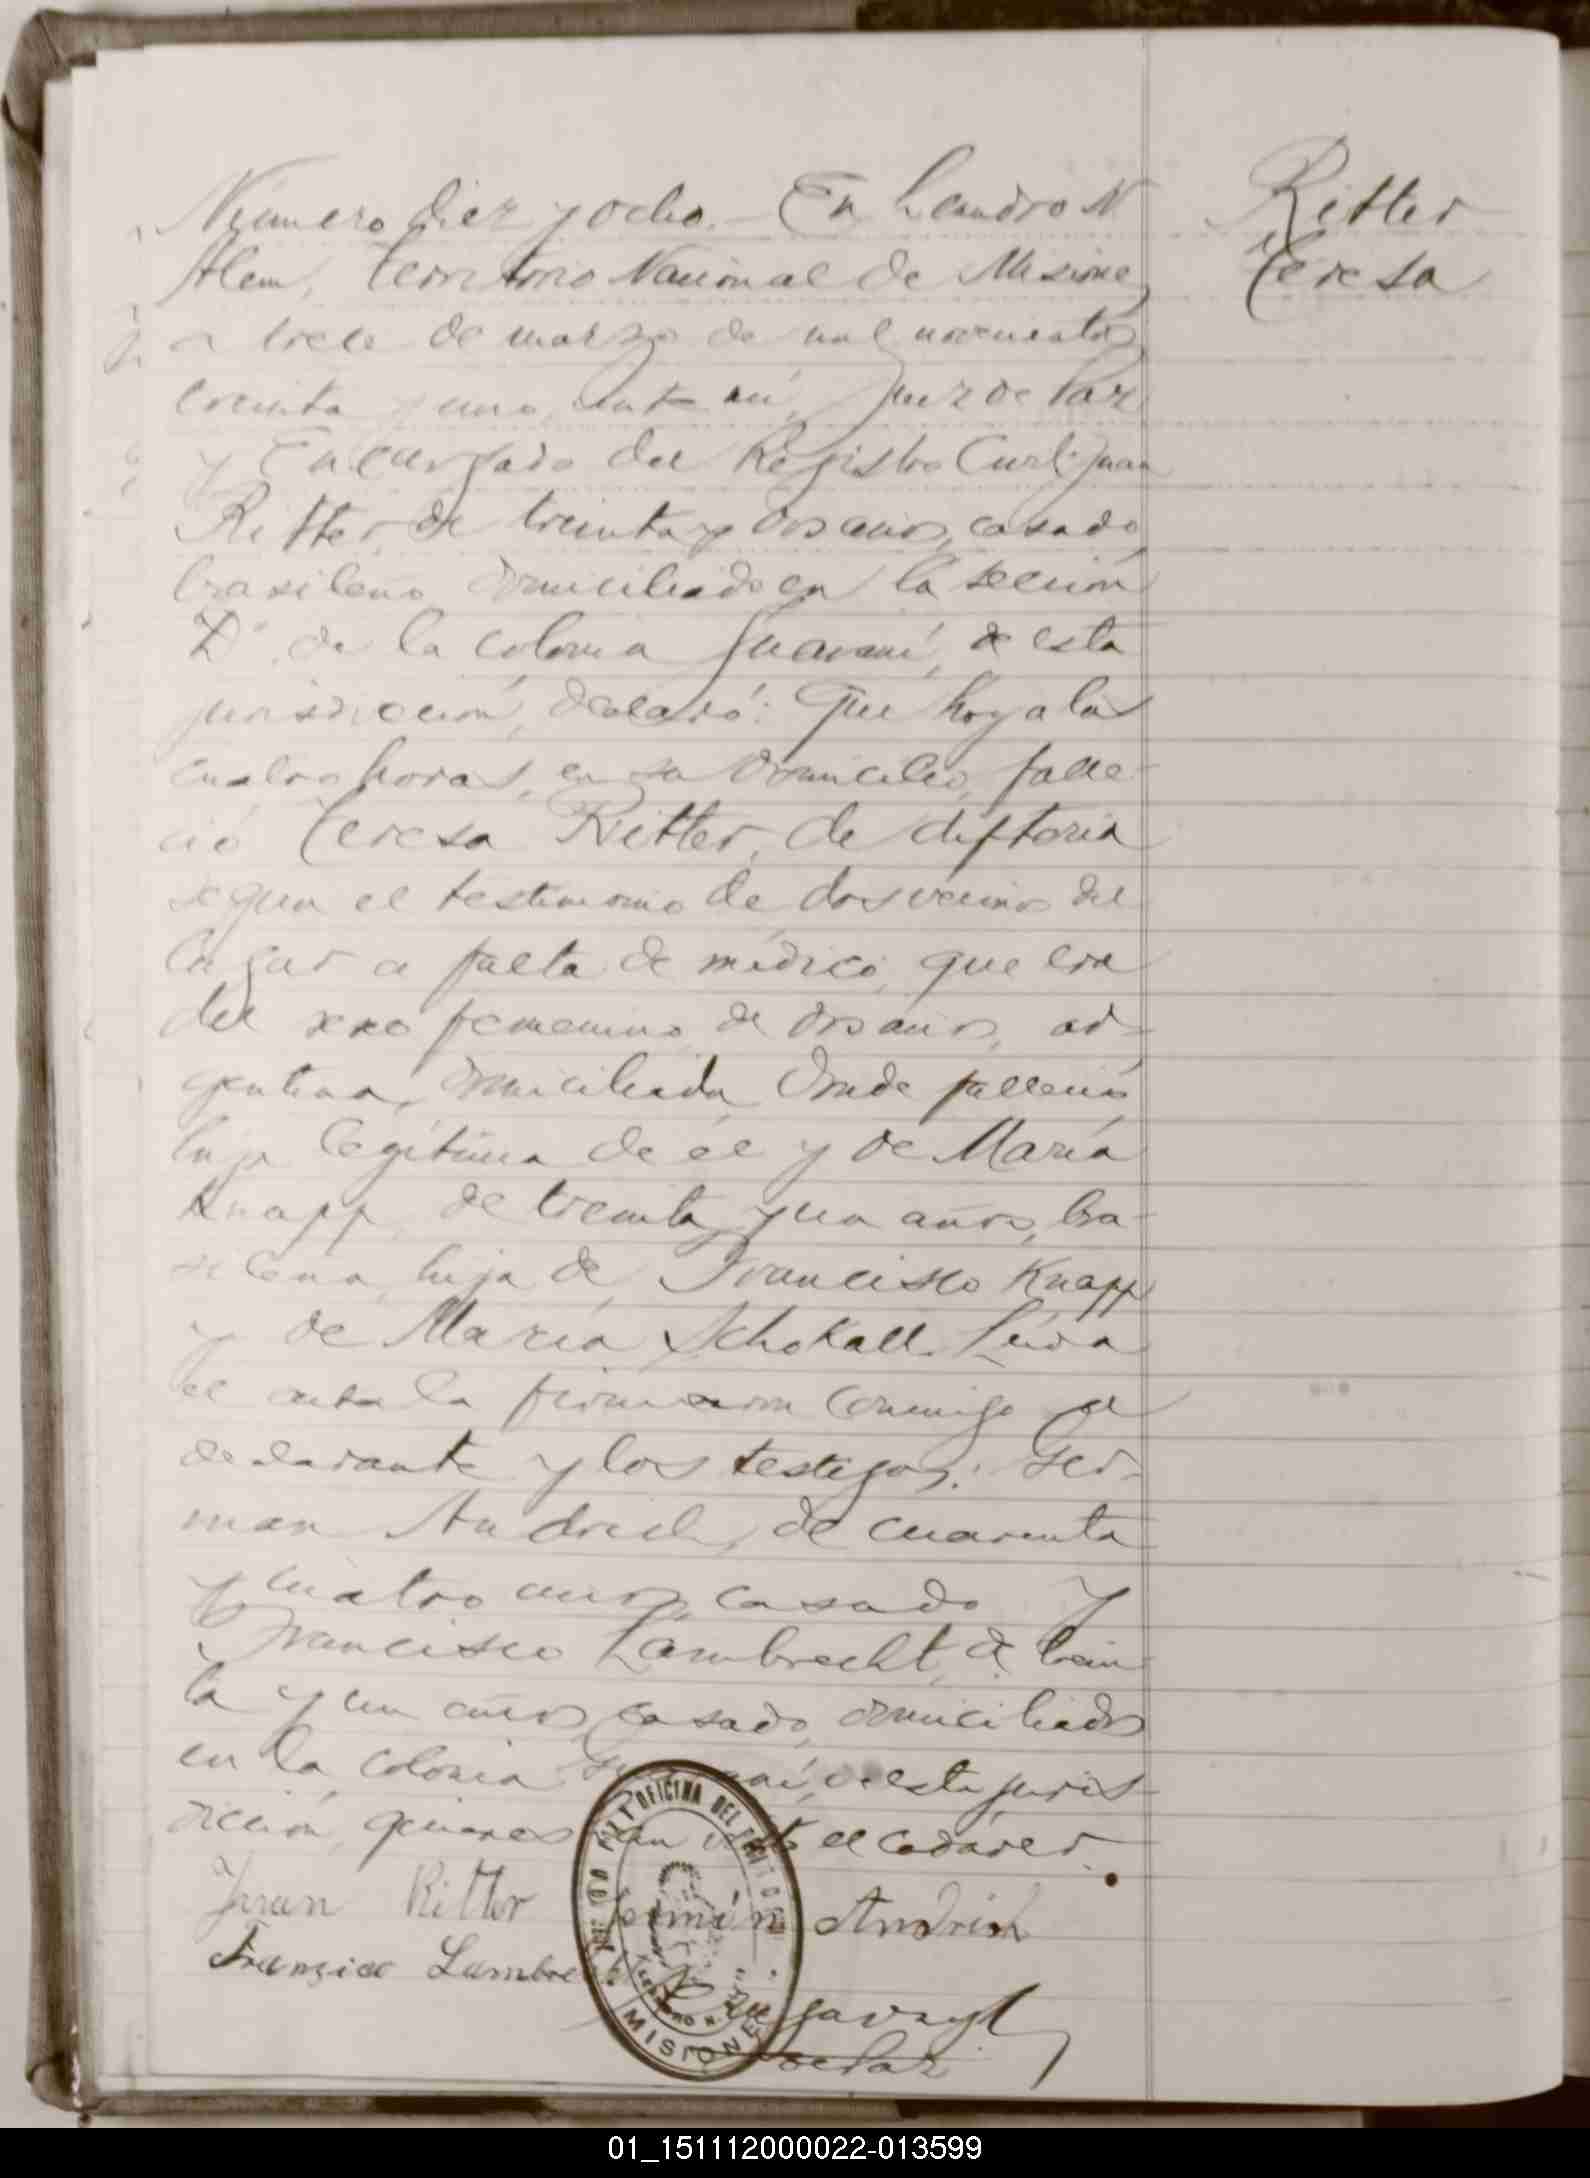 Número diez y ocho. En Leandro N.
Ritter
Teresa
Alem, Territorio Nacional de Misiones,
a trece de marzo de mil novecientos
treinta y uno, ante mí, Juez de Paz
y Encargado del Registro Civil, Juan
Ritter, de treinta y dos años, casado,
brasileño, domiciliado en la sección
"D" de la colonia Guaraní, de esta
jurisdicción, declaró: Que hoy a las
cuatro horas, en su domicilio, falle-
ció Teresa Ritter, de difteria
segun el testimonio de dos vecinos del
lugar a falta de médico, que era
del sexo femenino, de dos años, ar-
gentina, domiciliada donde falleció,
hija legítima de él y de María
Knapp, de treinta y un años, bra-
silena, hija de Francisco Knapp
y de María Schokall. Leída
el acta la firmaron conmigo el
declarante y los testigos: Ger-
man Andrich, de cuarenta
y cuatro años, casado y
Francisco Lambrecht, de trein
ta y un años, casado, domiciliados
en la colonia Guaraní, de esta juris-
dicción, quienes han visto el cadáver.
Juan Ritter Germán Andrich
Franzisco Lambrecht
de Paz
OFICINA DEL
MISIONES
01_151112000022-013599